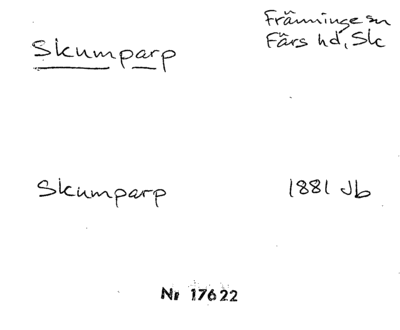 Skumparp
Främninge sn
Färs hd, Sk
Skumparp
1881 Jb
Nr 17622